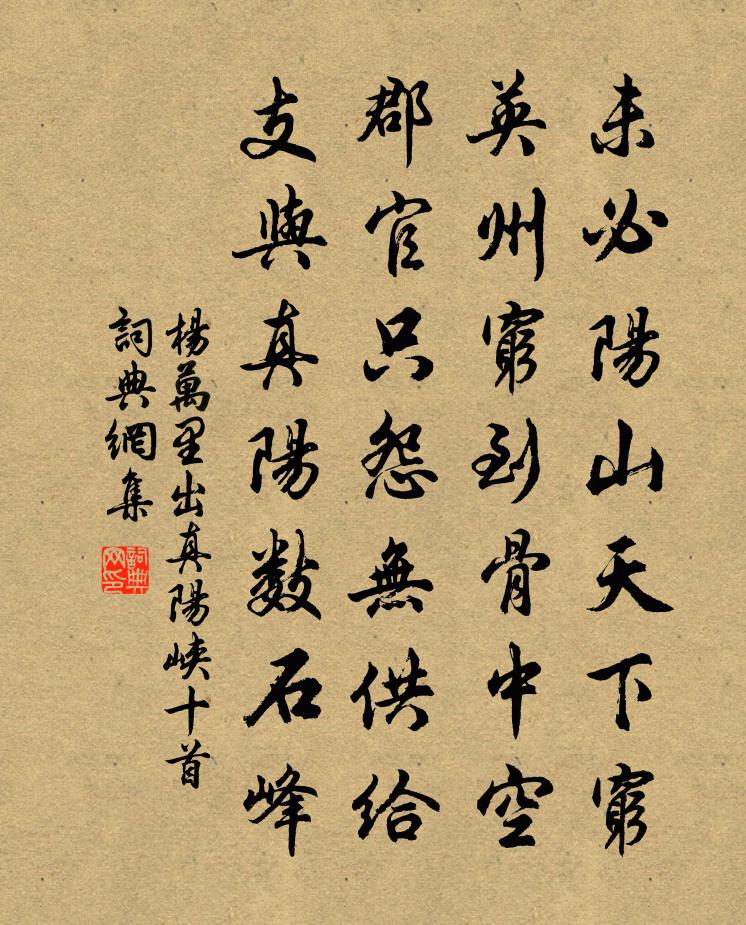 未必陽山天下窮
英州窮到骨中空
郡官只怨無供給
支與真陽數石峰
楊萬里出真陽峽十首
詞典網集
詞典网印